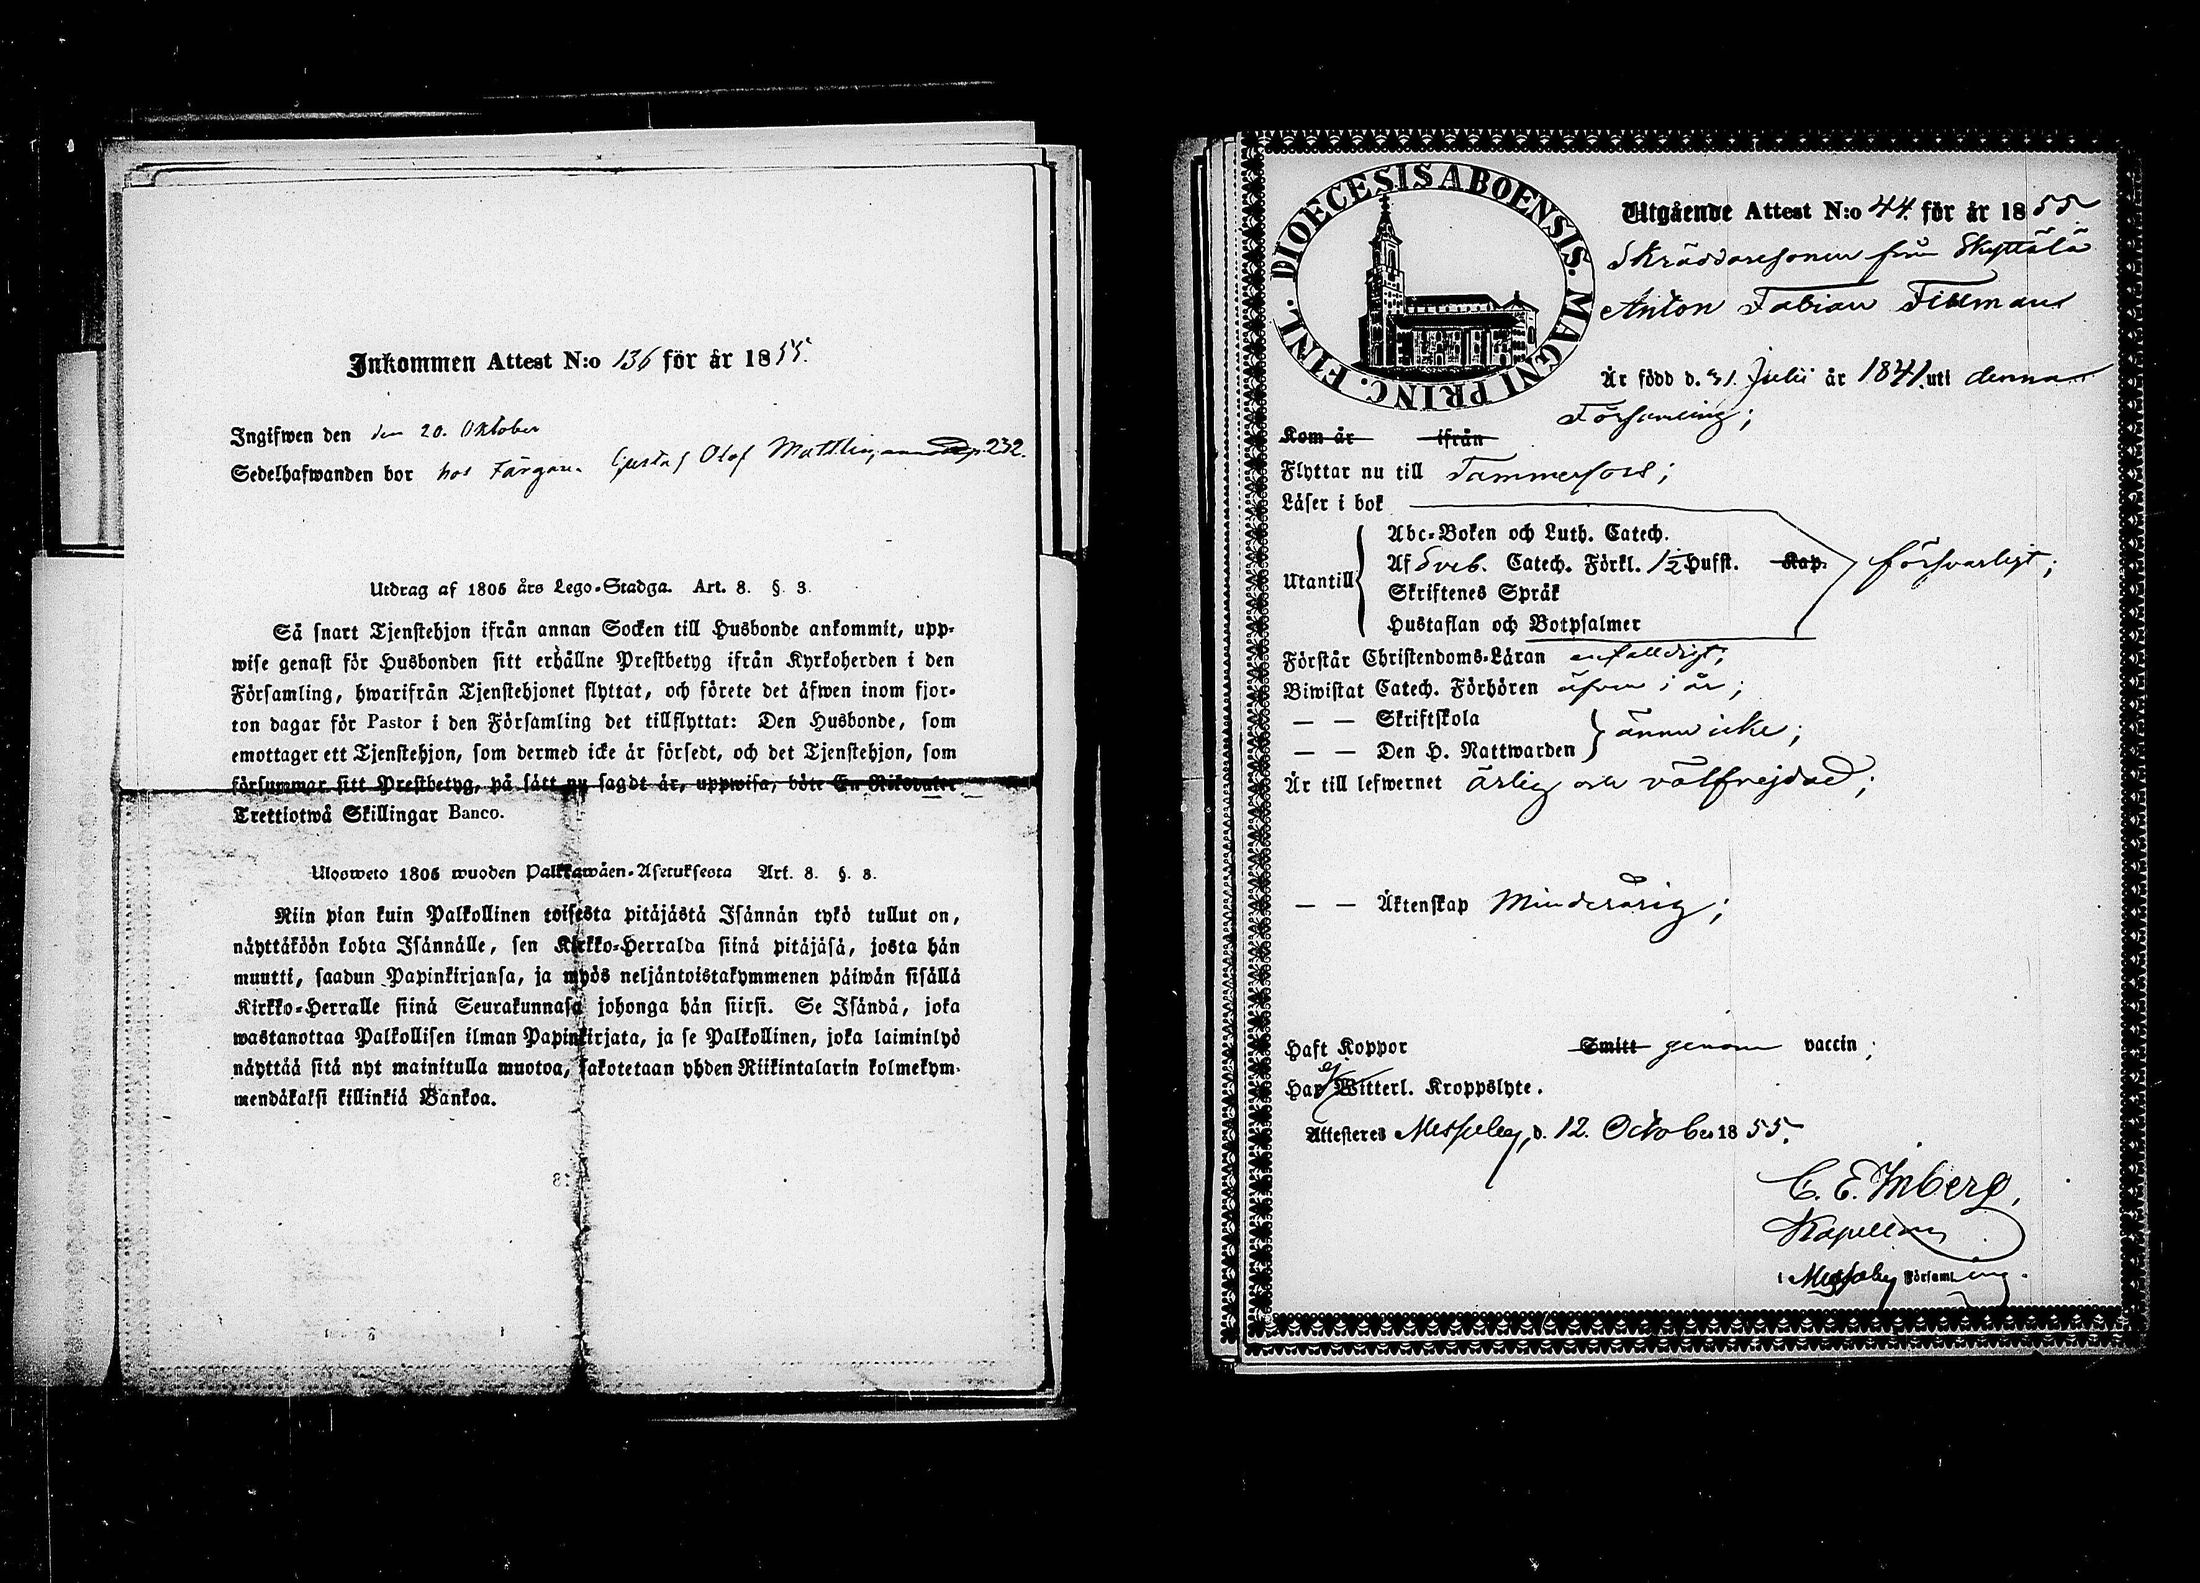 Inkommen Attest N:o 136 för år 1855.
Ingifwen den den 20. Oktober
Sedelhafwanden bor hos Färgaren Gustaf Olof Mattlin, p. 232.
Utdrag af 1805 års Lego-Stadga. Art. 8. §. 3.
Så snart Tjenstehjon ifrån annan Socken till Husbonde ankommit, upp-
wise genast för Husbonden sitt erhållne Prestbetyg ifrån Kyrkoherden i den
Församling, hwarifrån Tjenstehjonet flyttat, och förete det äfwen inom fjor-
ton dagar för Pastor i den Församling det tillflyttat: Den Husbonde, som
emottager ett Tjenstehjon, som dermed icke är försedt, och det Tjenstehjon, som
försummar sitt Prestbetyg, på sätt nu sagdt är, uppwisa, böte En Riksdaler
Trettiotwå Skillingar Banco.
Ulosweto 1805 wuoden Palkkawäen-Asetuksesta Art. 8. §. 3.
Niin pian kuin Palkollinen toisesta pitäjästä Isännän tykö tullut on,
näyttäköön kohta Isännälle, sen Kirkko-Herralda siinä pitäjäsä, josta hän
muutti, saadun Papinkirjansa, ja myös neljäntoistakymmenen päiwän sisällä
Kirkko-Herralle siinä Seurakunnasa johonga hän siirsi. Se Isändä, joka
wastanottaa Palkollisen ilman Papinkirjata, ja se Palkollinen, joka laiminlyö
näyttää sitä nyt mainitulla muotoa, sakotetaan yhden Riikintalarin kolmekym-
mendäkaksi killinkiä Bankoa.
DIOECESIS ABOENSIS. MAGNI PRINC. FINL.
Utgående Attest N:o 44. för år 1855
Skräddaresonen från Skyttälä
Anton Fabian Tillman
Är född d. 31. Julii år 1841. uti denna
Församling;
Kom år ifrån
Flyttar nu till Tammerfors;
Läser i bok
Abc-Boken och Luth. Catech.
Utantill Af Sveb. Catech. Förkl. 1½ Hufst. Kap. försvarligt;
Skriftenes Språk
Hustaflan och Botpsalmer
Förstår Christendoms-Läran enfalldigt;
Biwistat Catech. Förhören äfven i år;
— — Skriftskola
— — Den H. Nattwarden ännu icke;
Är till lefwernet ärlig och välfrejdad;
— — Äktenskap Minderårig;
Haft Koppor Smitt genom vaccin;
Har ej Witterl. Kroppslyte.
Attesteres Messuby, d. 12. October 1855.
C. E. Inberg,
Kapellan
i Messuby Församling.